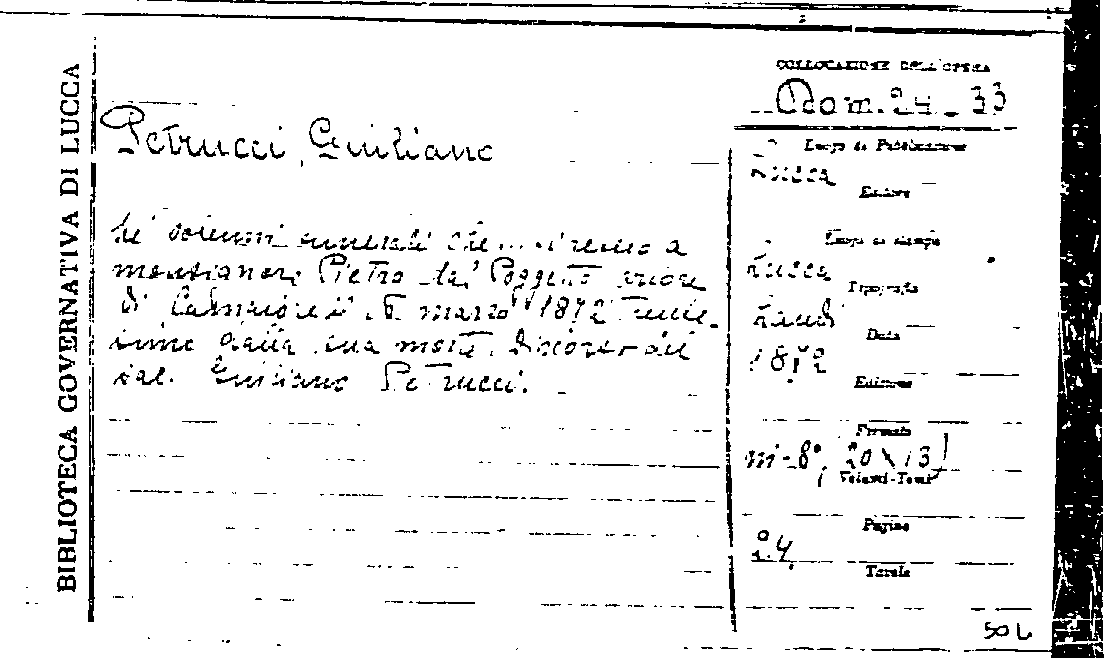 BIBLIOTECA GOVERNATIVA DI LUCCA
COLLOCAZIONE DELL'OPERA
Dom. 24 - 33
Petrucci, Giuliano
Luogo di Pubblicazione
Lucca
Editore
Ne' solenni funerali che si fecero a
monsignore Pietro dal Poggetto priore
di Camaiore il 5 marzo 1872 trige-
simo dalla sua morte. Discorso del
sac. Giuliano Petrucci.
Luogo di stampa
Lucca
Tipografia
Landi
Data
1872
Edizione
Formato
in-8°, 20 x 13
Volumi-Tomi
Pagine
24.
Tavole
50 L